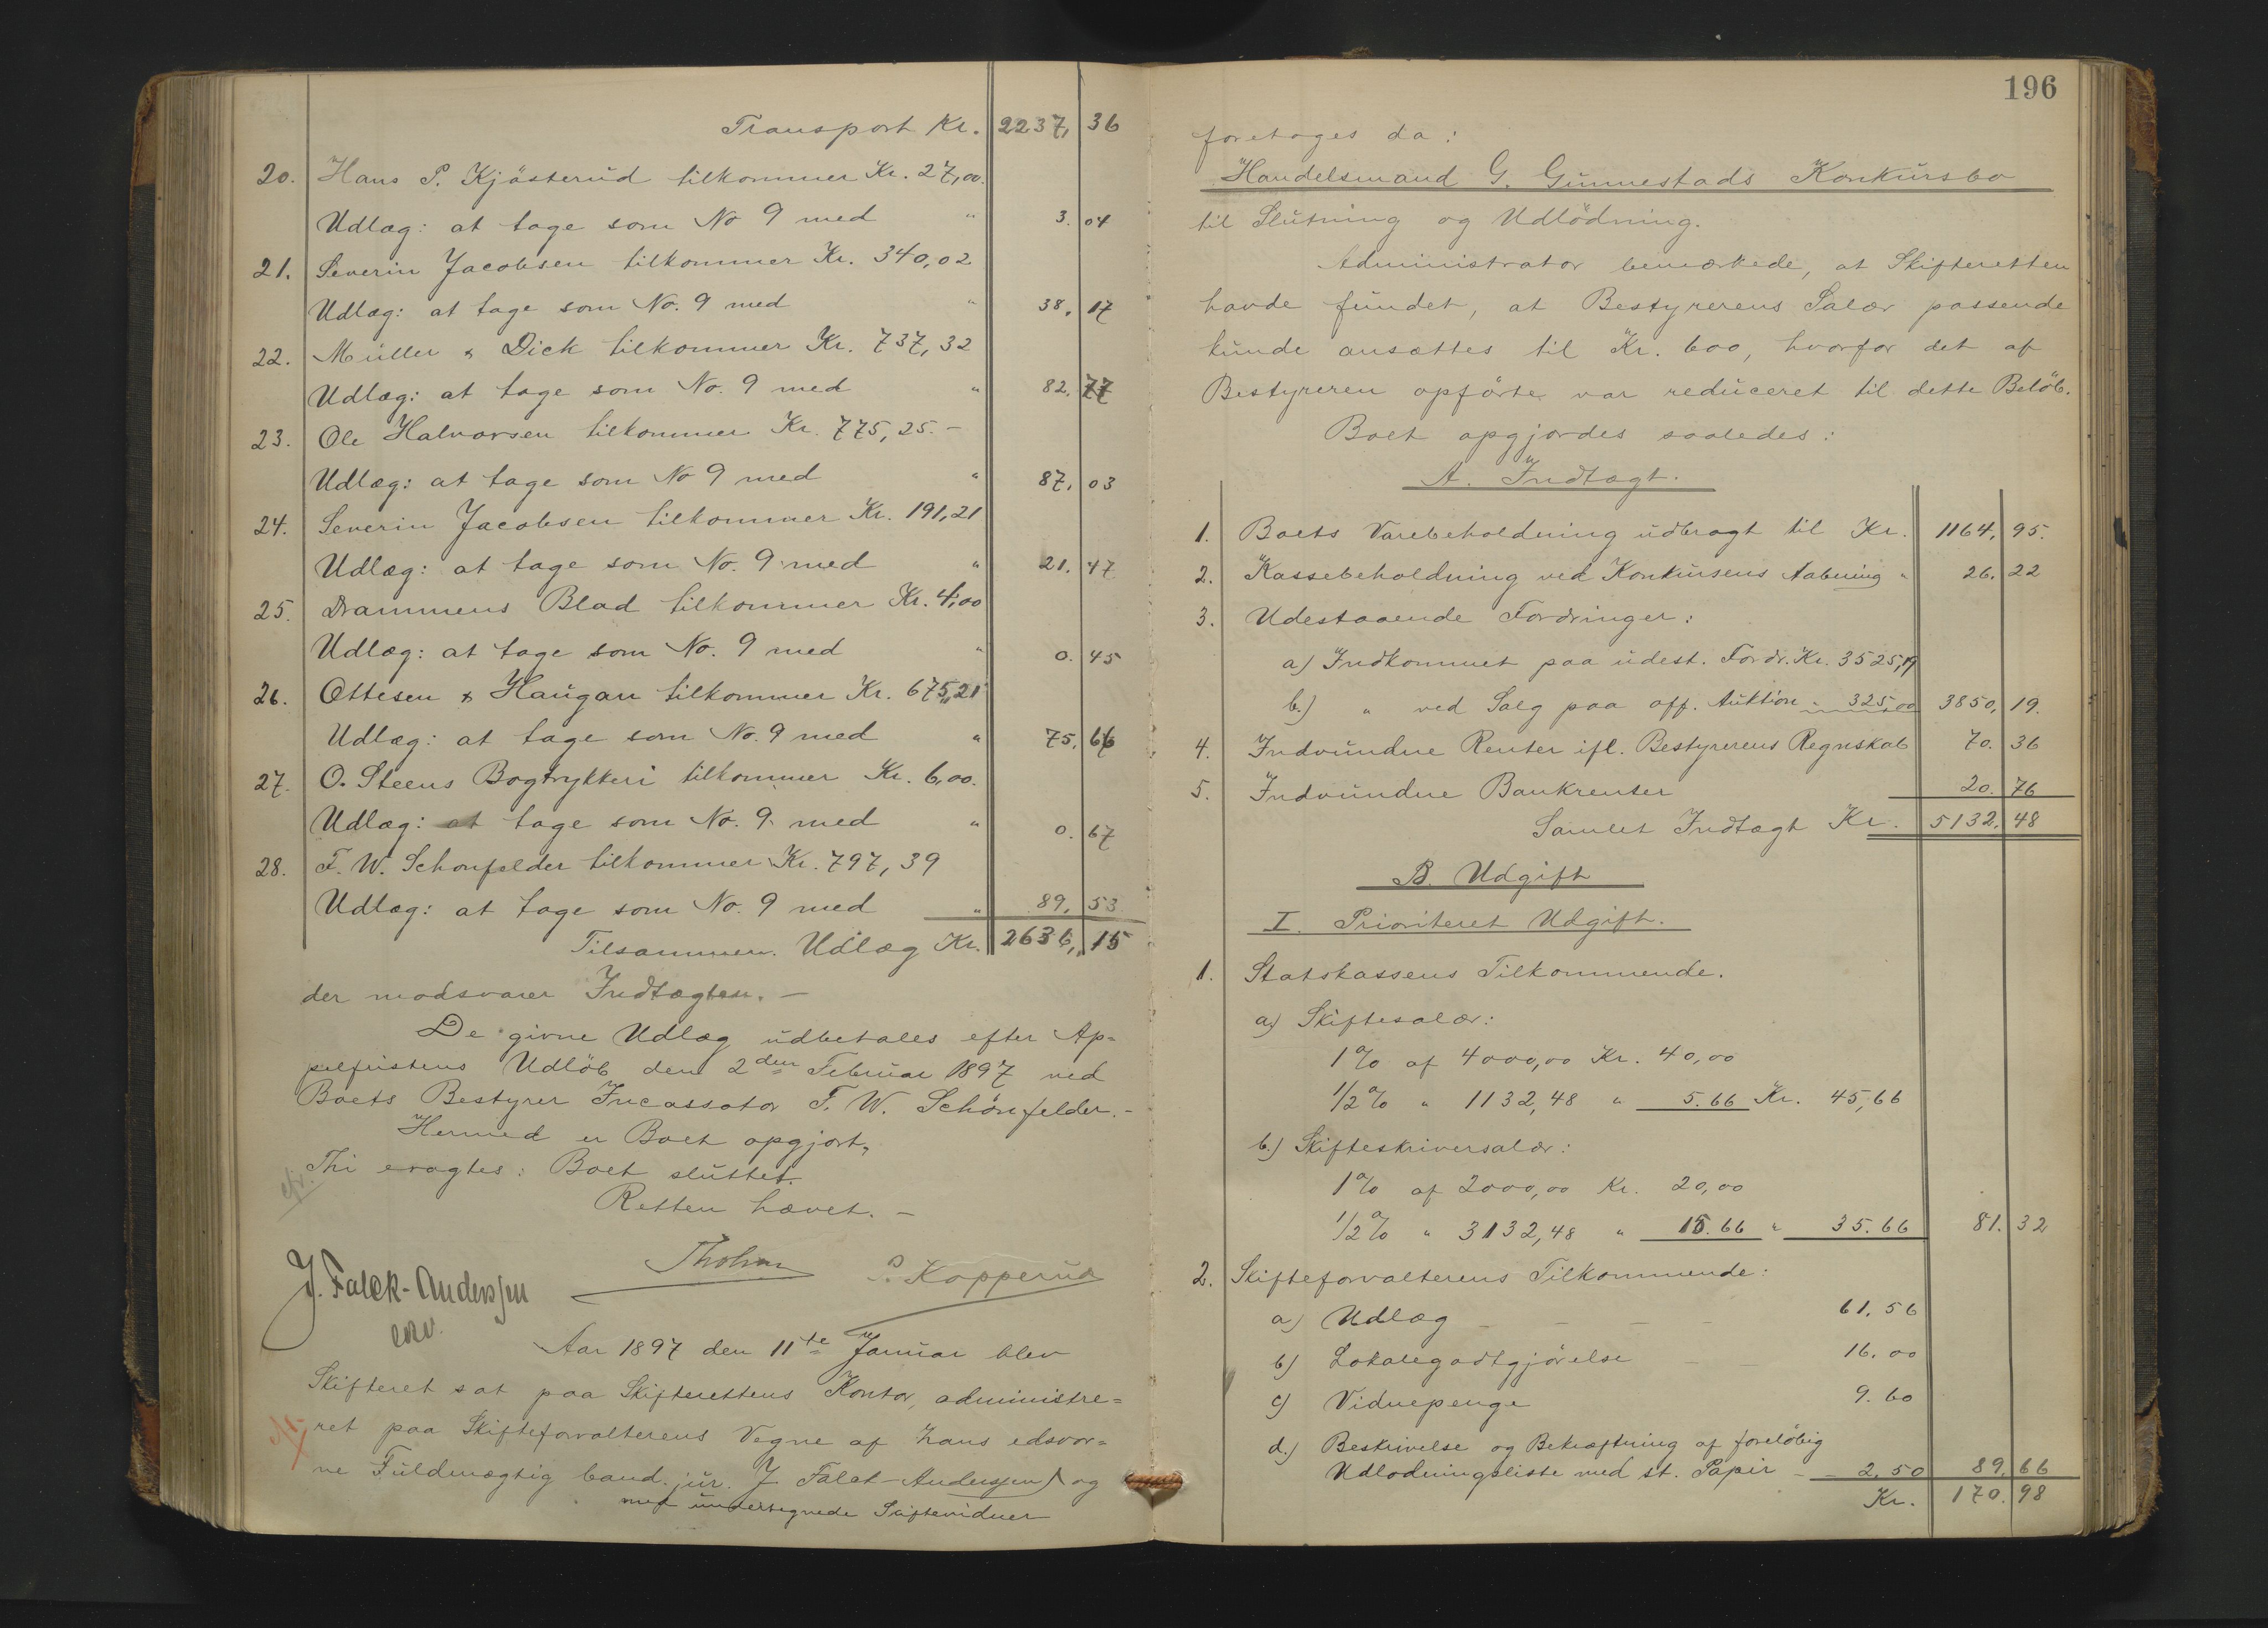 Transport Kr. 2237, 36
20. Hans P. Kjösterud tilkommer Kr. 27,00.
Udlæg: at tage som No 9 med " 3. 04
21. Severin Jacobsen tilkommer Kr. 340,02
Udlæg: at tage som No. 9 med " 38, 17
22. Müller & Dick tilkommer Kr. 737,32
Udlæg: at tage som No. 9 med " 82. 77
23. Ole Halvorsen tilkommer Kr. 775,25.-
Udlæg: at tage som No 9 med " 87, 03
24. Severin Jacobsen tilkommer Kr. 191,21
Udlæg: at tage som No. 9 med " 21. 47
25. Drammens Blad tilkommer Kr. 4,00
Udlæg: at tage som No. 9 med " 0. 45
26. Ottesen & Haugan tilkommer Kr. 675,21
Udlæg: at tage som No. 9 med " 75, 66
27. O. Steens Bogtrykkeri tilkommer Kr. 6,00.
Udlæg: at tage som No. 9 med " 0. 67
28. F. W. Schonfelder tilkommer Kr. 797,39
Udlæg: at tage som No. 9 med " 89, 53
Tilsammen Udlæg Kr. 2636, 15
der modsvarer Indtægten. —
De givne Udlæg udbetales efter Ap=
pelfristens Udlöb den 2den Februar 1897 ved
Boets Bestyrer Incassator F. W. Schönfelder. -
Hermed er Boet opgjort,
Thi eragtes: Boet sluttet.
Retten hævet. —
Tholm P. Kopperud
J. Falck-Anderssen
edsv.
Aar 1897 den 11te Januar blev
Skifteret sat paa Skifterettens Kontor, administre=
ret paa Skifteforvalterens Vegne af hans edsvor=
ne Fuldmægtig cand. jur. J Falck-Anderssen og
med undertegnede Skiftevidner
196
foretages da:
Handelsmand G. Gunnestads Konkursbo
til Slutning og Udlödning.
Administrator bemærkede, at Skifteretten
havde fundet, at Bestyrerens Salær passende
kunde ansættes til Kr. 600, hvorfor det af
Bestyreren opförte var reduceret til dette Belöb.
Boet opgjordes saaledes:
A. Indtægt.
1. Boets Varebeholdning udbragt til Kr. 1164, 95.
2. Kassebeholdning ved Konkursens Aabning " 26. 22
3. Udestaaende Fordringer:
a) Indkommet paa udest. Fordr. Kr. 3525,19
b.) " ved Salg paa off. Auktion " 325,00 3850, 19.
4. Indvundne Renter ifl. Bestyrerens Regnskab 70. 36
5. Indvundne Bankrenter 20. 76
Samlet Indtægt Kr. 5132. 48
B. Udgift
I. Prioriteret Udgift.
1. Statskassens Tilkommende.
a) Skiftesalær:
1% af 4000,00 Kr. 40,00
1/2% " 1132,48 " 5.66 Kr. 45,66
b.) Skifteskriversalær:
1% af 2000,00 Kr. 20,00
1/2% " 3132,48 " 15.66 " 35.66 81. 32
2. Skifteforvalterens Tilkommende:
a) Udlæg — — — — 61.56
b) Lokalegodtgjörelse — — 16.00
c) Vidnepenge 9.60
d.) Beskrivelse og Bekræftning af foreløbig
Udlodningsliste med st. Papir - - 2.50 89, 66
Kr. 170. 98